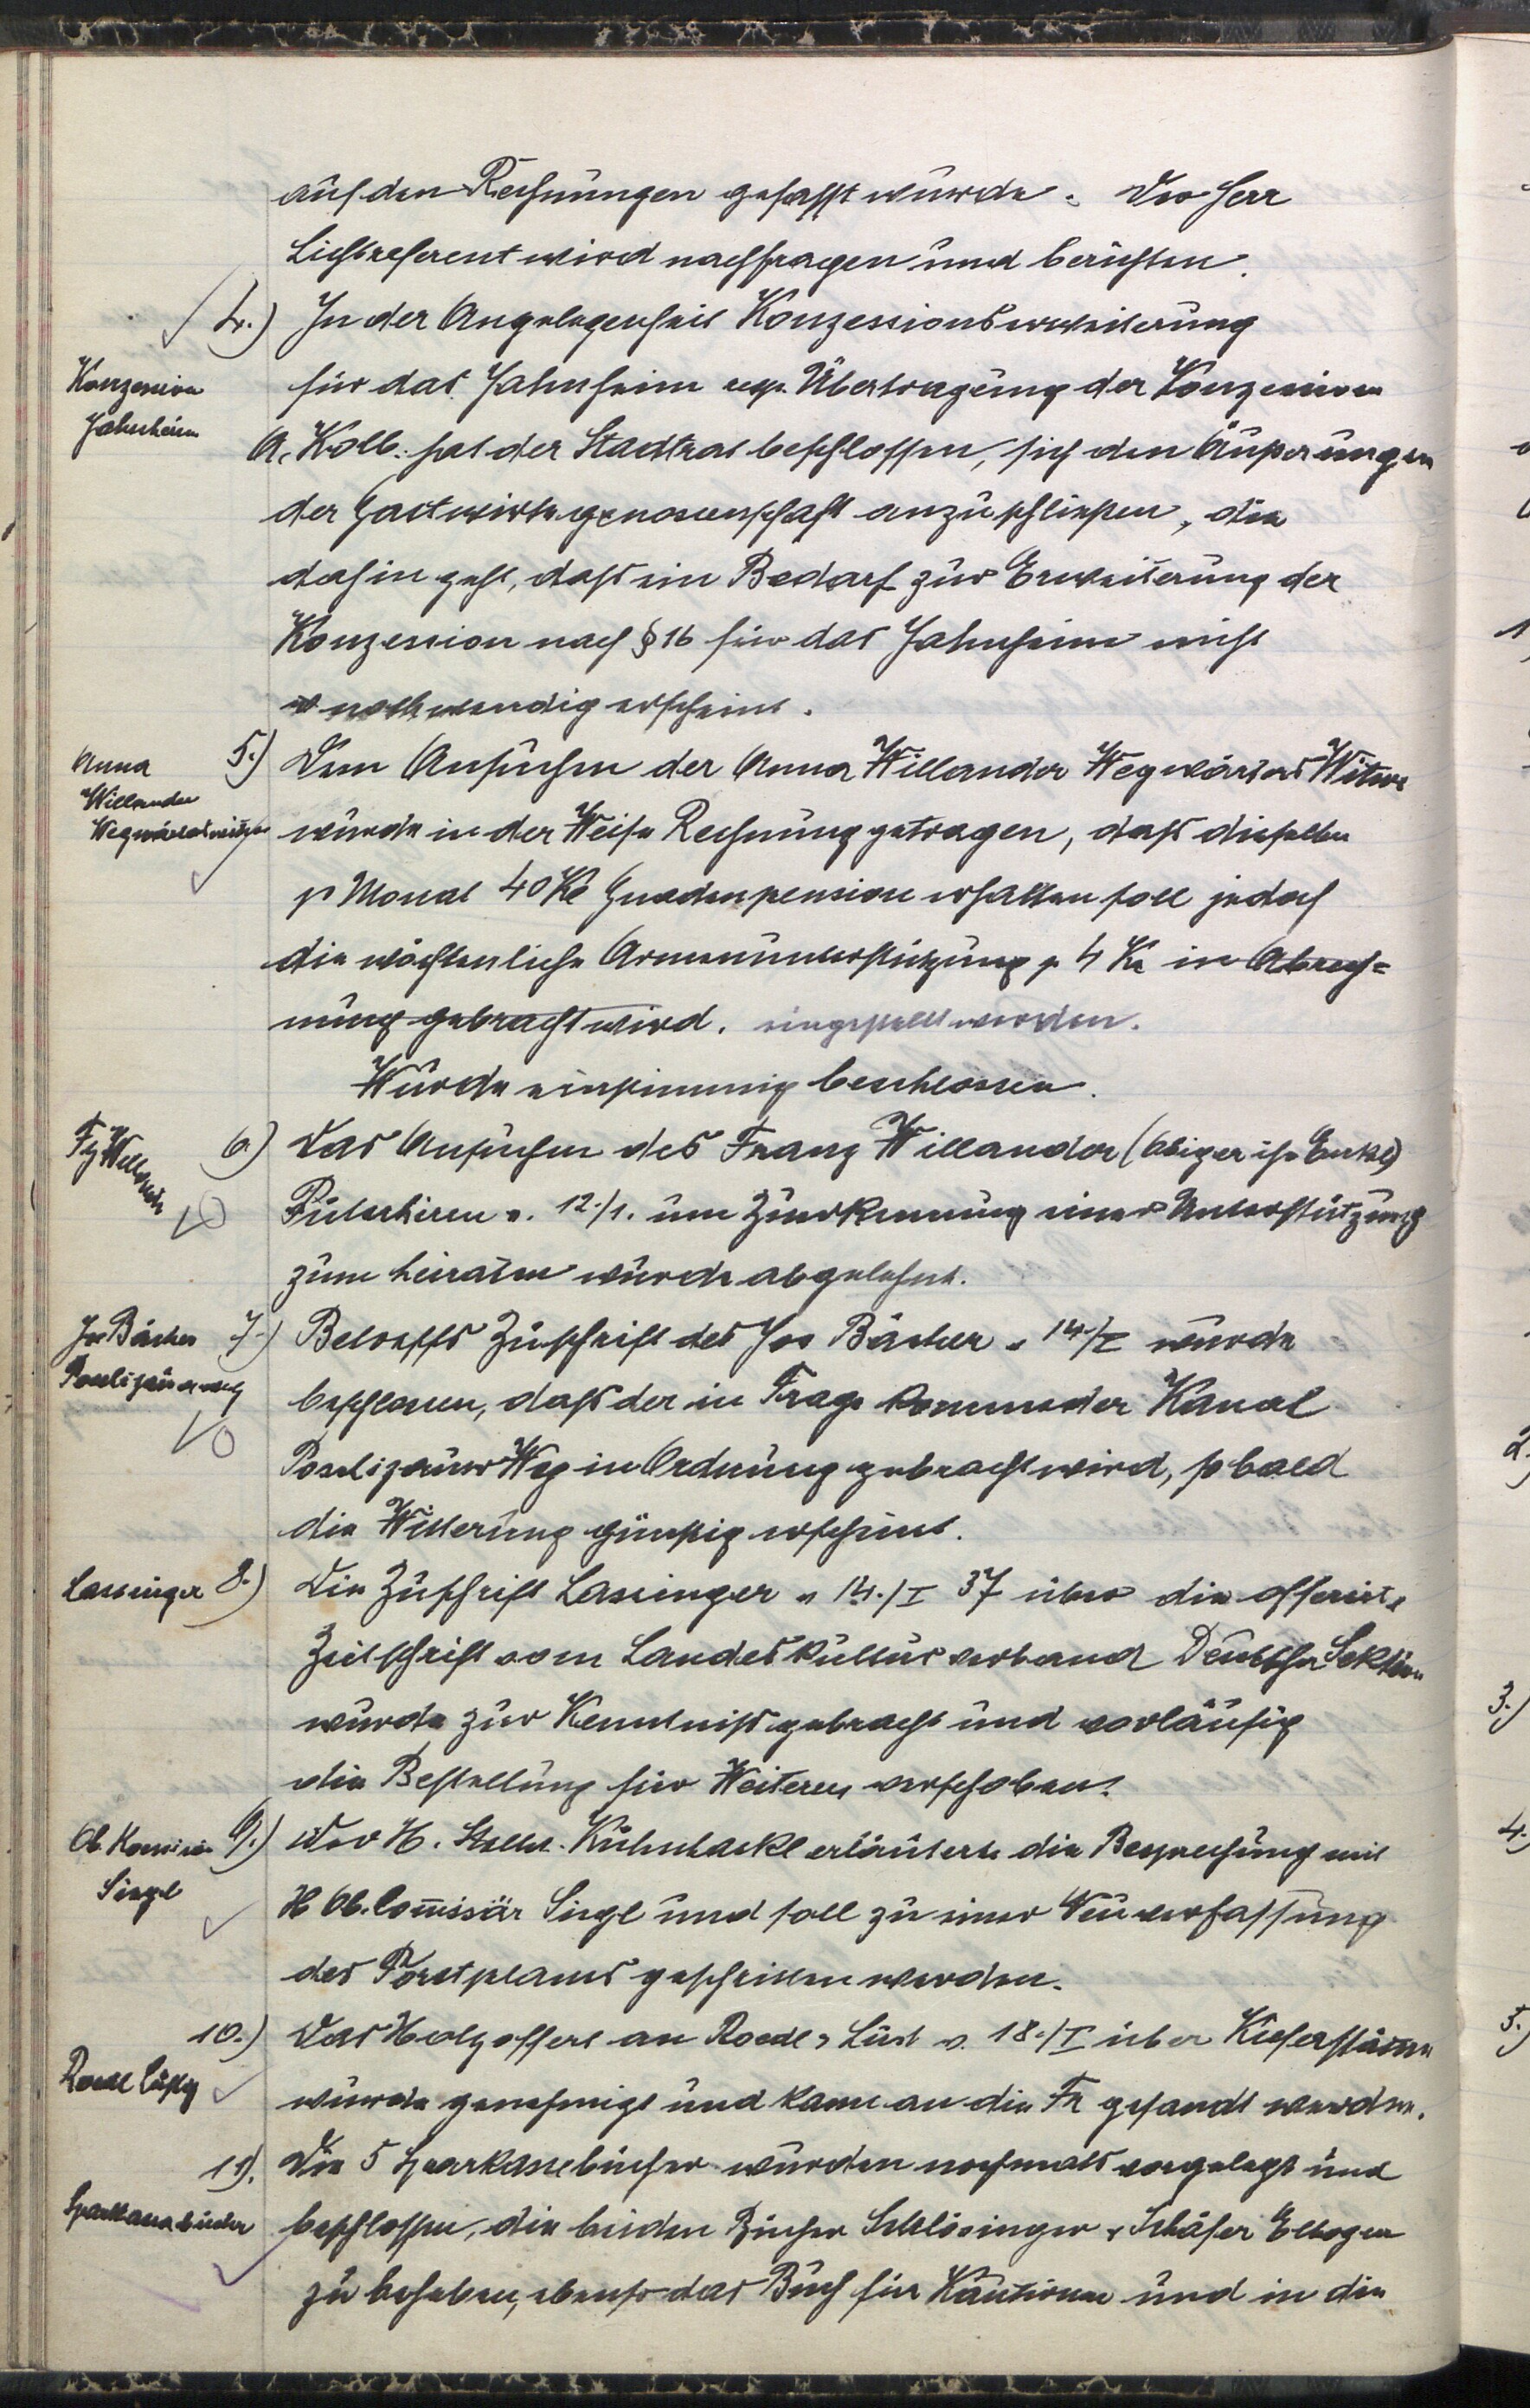 auf den Rechnungen gefasst wurde. Der Herr
Lichtreferent wird nachfragen und berichten.
4.) In der Angelegenheit Konzessionserweiterung
Konzession
Jahnheim
für das Jahnheim resp. Übertragung der Konzession
A. Kolb. hat der Stadtrat beschlossen, sich den Äußerungen
der Gastwirtegenossenschaft anzuschließen, die
dahin geht, daß ein Bedarf zur Erweiterung der
Konzession nach § 16 für das Jahnheim nicht
notwendig erscheint.
Anna
Willander
Wegwärterswitwe
5.) Dem Ansuchen der Anna Willander Wegwärters Witwe
wurde in der Weise Rechnung getragen, daß dieselbe
p Monat 40 Kč Gnadenpension erhalten soll jedoch
die wöchentliche Armenunterstützung p 4 Kč in Abrech=
nung gebracht wird. eingestellt werden.
Wurde einstimmig beschlossen.
Fz Willander
6.) Das Ansuchen des Franz Willander (Obiger ihr Enkel)
v. 12./1. um Zuerkennung einer Unterstützung
zum heiraten wurde abgelehnt.
Jos Bächer
7.) Betreffs Zuschrift des Jos Bächer v 14/I wurde
beschlossen, daß der in Frage kommende Kanal
Weg in Ordnung gebracht wird, sobald
die Witterung günstig erscheint.
Lassinger
8.) Die Zuschrift Lassinger v 14./I 37 über die offerirte
Zeitschrift vom Landeskulturverband Deutscher Sektion
wurde zur Kenntniß gebracht und vorläufig
die Bestellung für Weiteres verschoben.
Ob. Komissär
Singl
9.) Der H. Stellv. Kühnhackl erläuterte die Besprechung mit
H Ob. Com̅issär Singl und soll zu einer Neuverfassung
des Forstplanes geschritten werden.
10.) Das Holzoffert an v. 18./I über Kieferstämme
wurde genehmigt und kann an die Fa gesandt werden.
11). Die 5 Sparkassebücher wurden nochmals vorgelegt und
Sparkassabücher
beschlossen, die beiden Bücher Schlösinger & Schäfer Elbogen
zu beheben, ebenso das Buch für Kautionen und in die